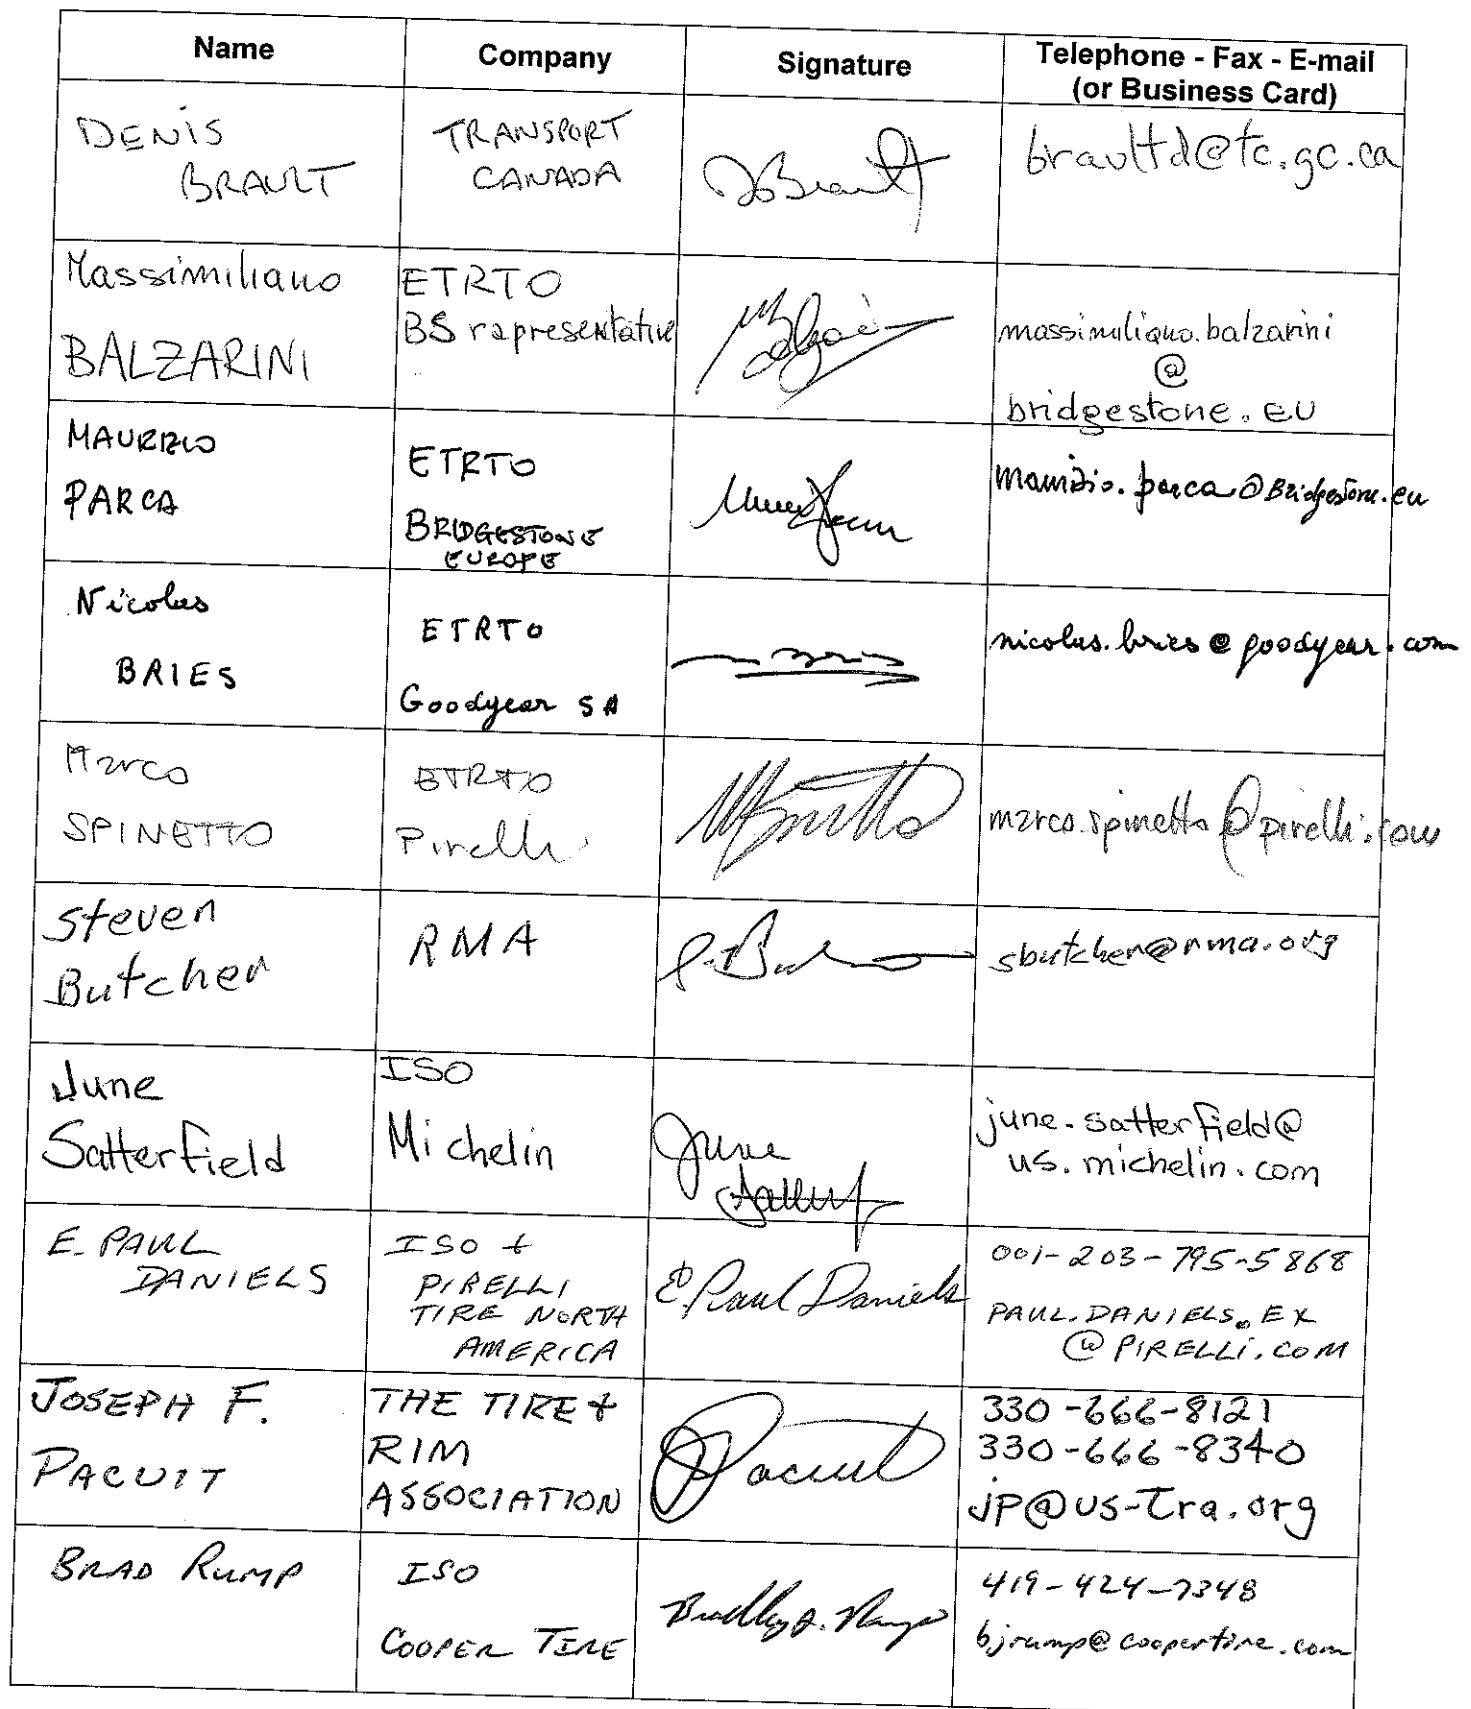 Name Company Signature Telephone - Fax - E-mail
(or Business Card)
DENIS
BRAULT
TRANSPORT
CANADA
DBrault
braultd@tc.gc.ca
Massimiliano
BALZARINI
ETRTO
BS rapresentative
massimiliano.balzarini
@
bridgestone.EU
MAURIZIO
PARCA
ETRTO
BRIDGESTONE
EUROPE
maurizio.parca@Bridgestone.eu
Nicolas
BRIES
ETRTO
Goodyear SA
nicolas.bries@goodyear.com
Marco
SPINETTO
ETRTO
Pirelli
MSpinetto
marco.spinetto@pirelli.com
Steven
Butcher
RMA
sbutcher@rma.org
June
Satterfield
ISO
Michelin
June
june.satterfield@
us.michelin.com
E. PAUL
DANIELS
ISO +
PIRELLI
TIRE NORTH
AMERICA
E. Paul Daniels
001-203-795-5868
PAUL.DANIELS.EX
@PIRELLI.COM
JOSEPH F.
PACUIT
THE TIRE +
RIM
ASSOCIATION
JPacuit
330-666-8121
330-666-8340
jp@us-tra.org
BRAD RUMP
ISO
COOPER TIRE
Bradley J. Rump
419-424-7348
bjrump@coopertire.com